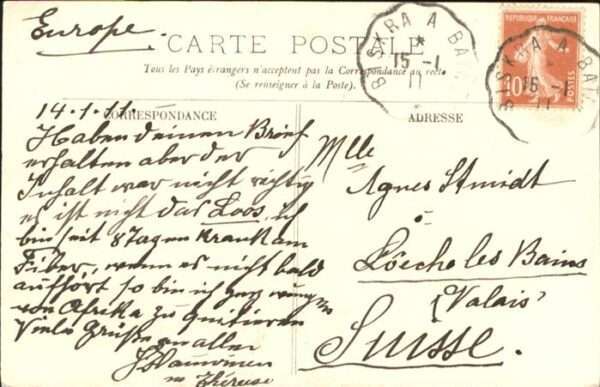 Europe.
CARTE POSTALE
Tous les Pays étrangers n'acceptent pas la Correspondance au recto
(Se renseigner à la Poste).
BISKRA A BAT
15-1
11
RÉPUBLIQUE FRANÇAISE
10
POSTES
BISKRA A BAT
15-1
11
CORRESPONDANCE
14.1.11.
Haben deinen Brief
erhalten aber der
Inhalt war nicht richtig
es ist nicht das Loos, ich
bin seit 8 Tagen Krank am
Fiber, wenn es nicht bald
aufhört so bin ich
von Afrika zu quitieren
Viele Grüße an alle
Thérese
ADRESSE
Mlle
Agnes Schmidt
à
Loèche les Bains
(Valais)
Suisse.